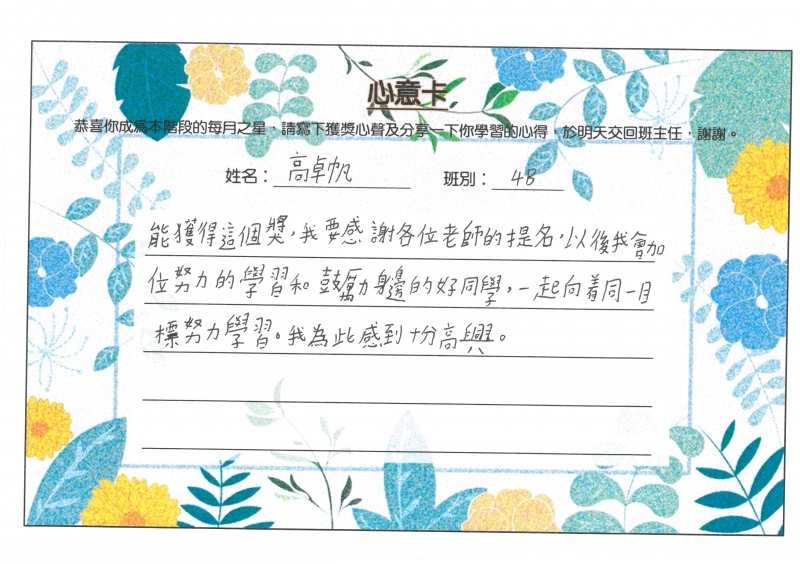 心意卡
恭喜你成為本階段的每月之星，請寫下獲獎心聲及分享一下你學習的心得，於明天交回班主任，謝謝。
姓名：高卓帆 班別：4B
能獲得這個獎，我要感謝各位老師的提名，以後我會加
位努力的學習和鼓勵身邊的好同學，一起向着同一目
標努力學習。我為此感到十分高興。